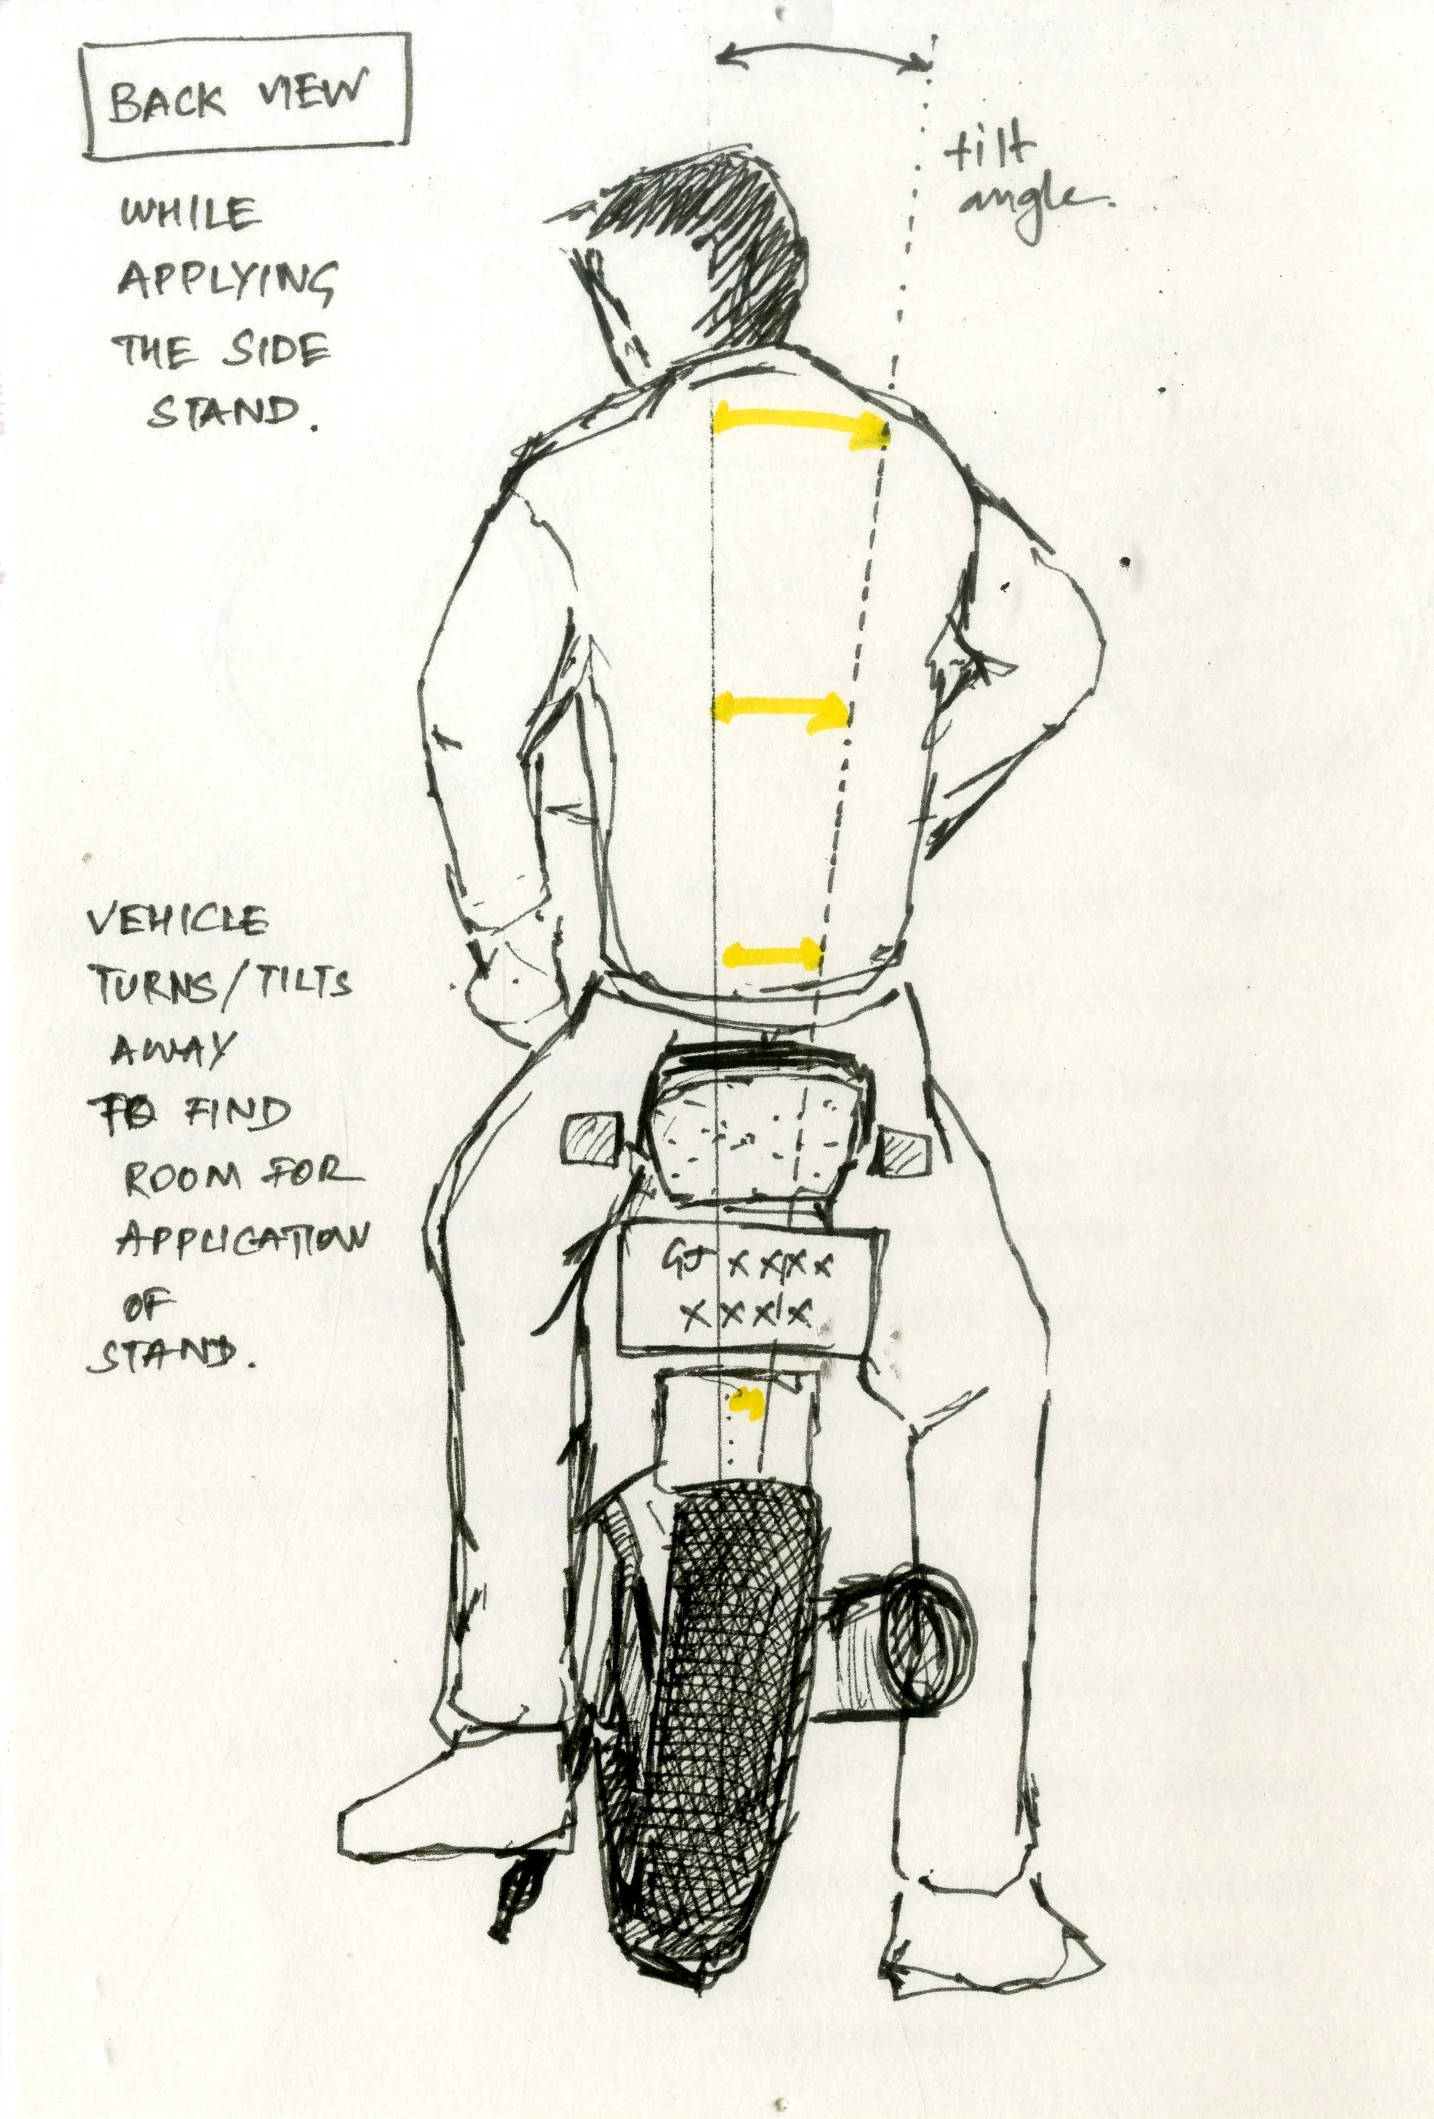 BACK VIEW
WHILE
APPLYING
THE SIDE
STAND.
tilt
angle.
VEHICLE
TURNS/TILTS
AWAY
TO FIND
ROOM FOR
APPLICATION
OF
STAND.
GJ XXXX
XXXX